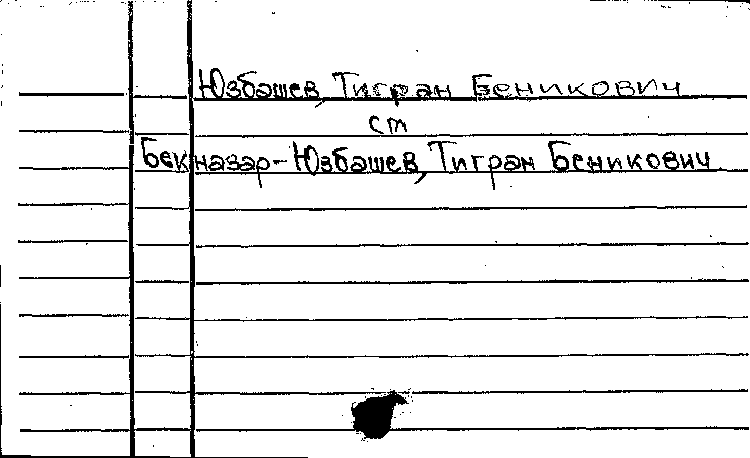 Юзбашев, Тигран Беникович
ст
Бекназар-Юзбашев, Тигран Беникович